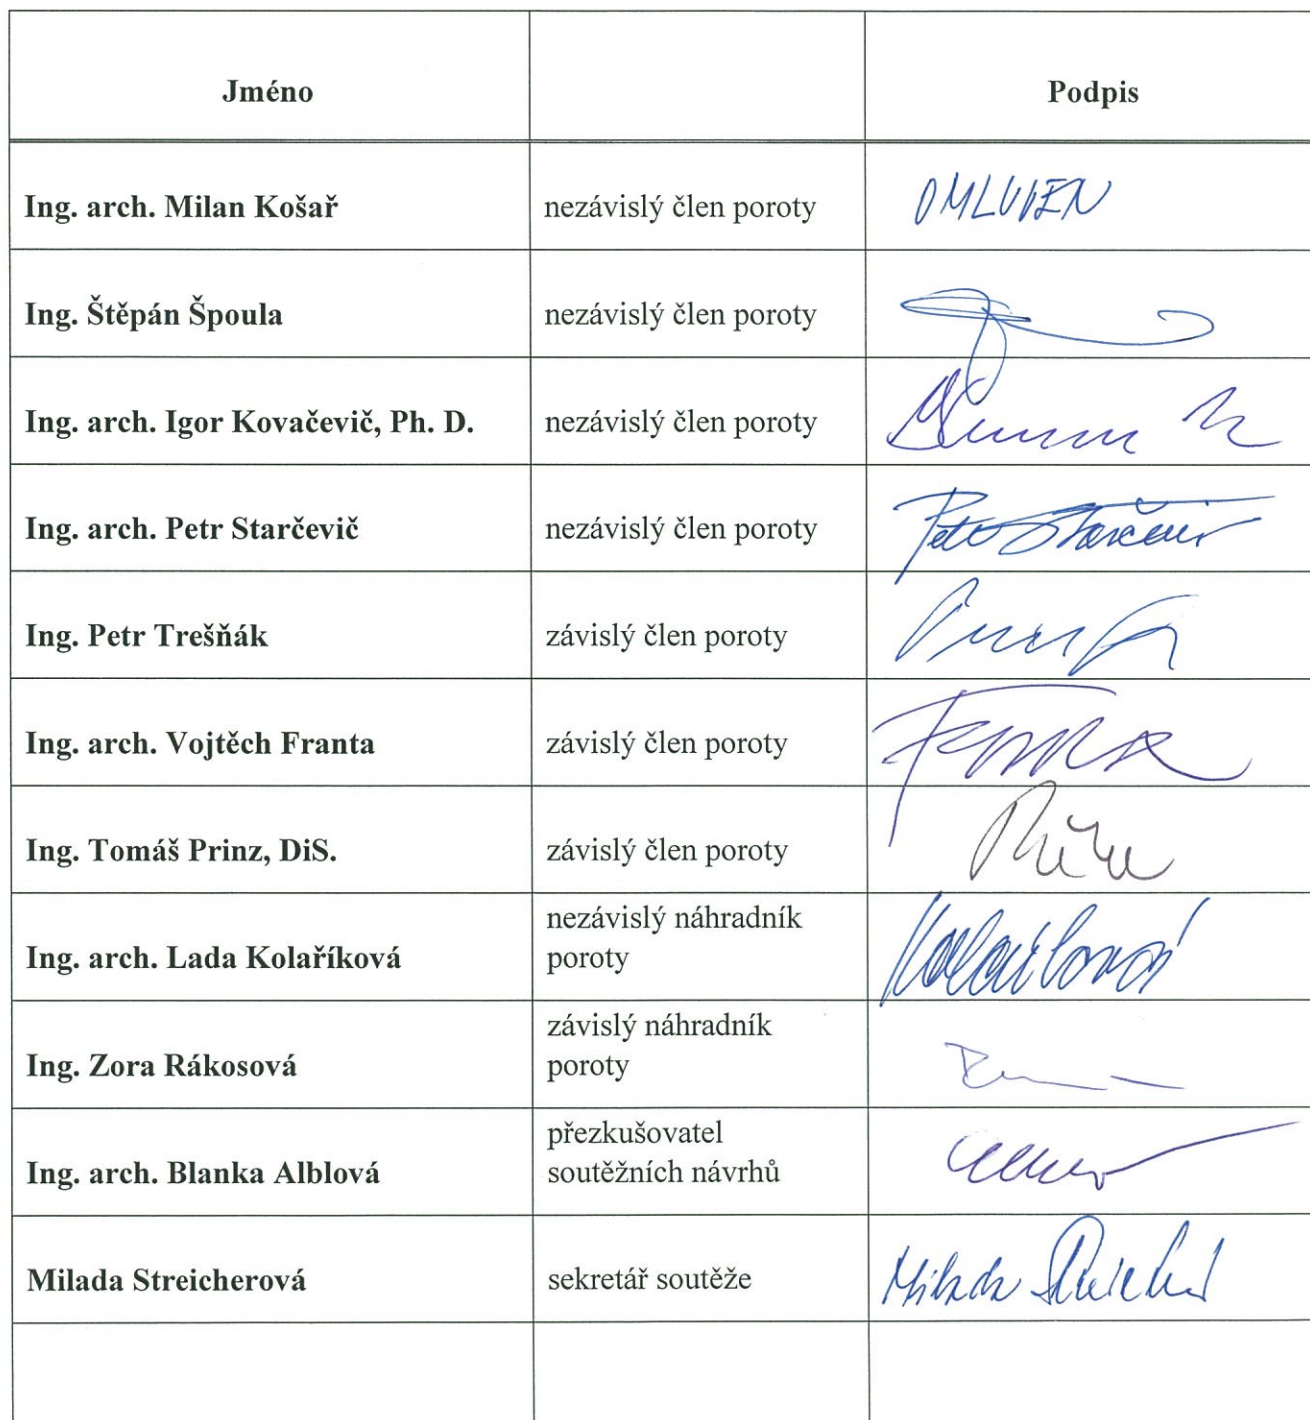 Jméno Podpis
Ing. arch. Milan Košař nezávislý člen poroty OMLUVEN
Ing. Štěpán Špoula nezávislý člen poroty
Ing. arch. Igor Kovačevič, Ph. D. nezávislý člen poroty
Ing. arch. Petr Starčevič nezávislý člen poroty Petr Starčevič
Ing. Petr Trešňák závislý člen poroty
Ing. arch. Vojtěch Franta závislý člen poroty
Ing. Tomáš Prinz, DiS. závislý člen poroty
Ing. arch. Lada Kolaříková nezávislý náhradník
poroty
Ing. Zora Rákosová závislý náhradník
poroty
Ing. arch. Blanka Alblová přezkušovatel
soutěžních návrhů
Milada Streicherová sekretář soutěže Milada